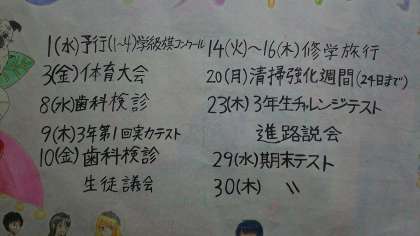 1(水)予行(1~4)学級旗コンクール
3(金)体育大会
8(水)歯科検診
9(木)3年第1回実力テスト
10(金)歯科検診
生徒議会
14(火)~16(木)修学旅行
20(月)清掃強化週間(24日まで)
23(木)3年生チャレンジテスト
進路説会
29(水)期末テスト
30(木) 〃